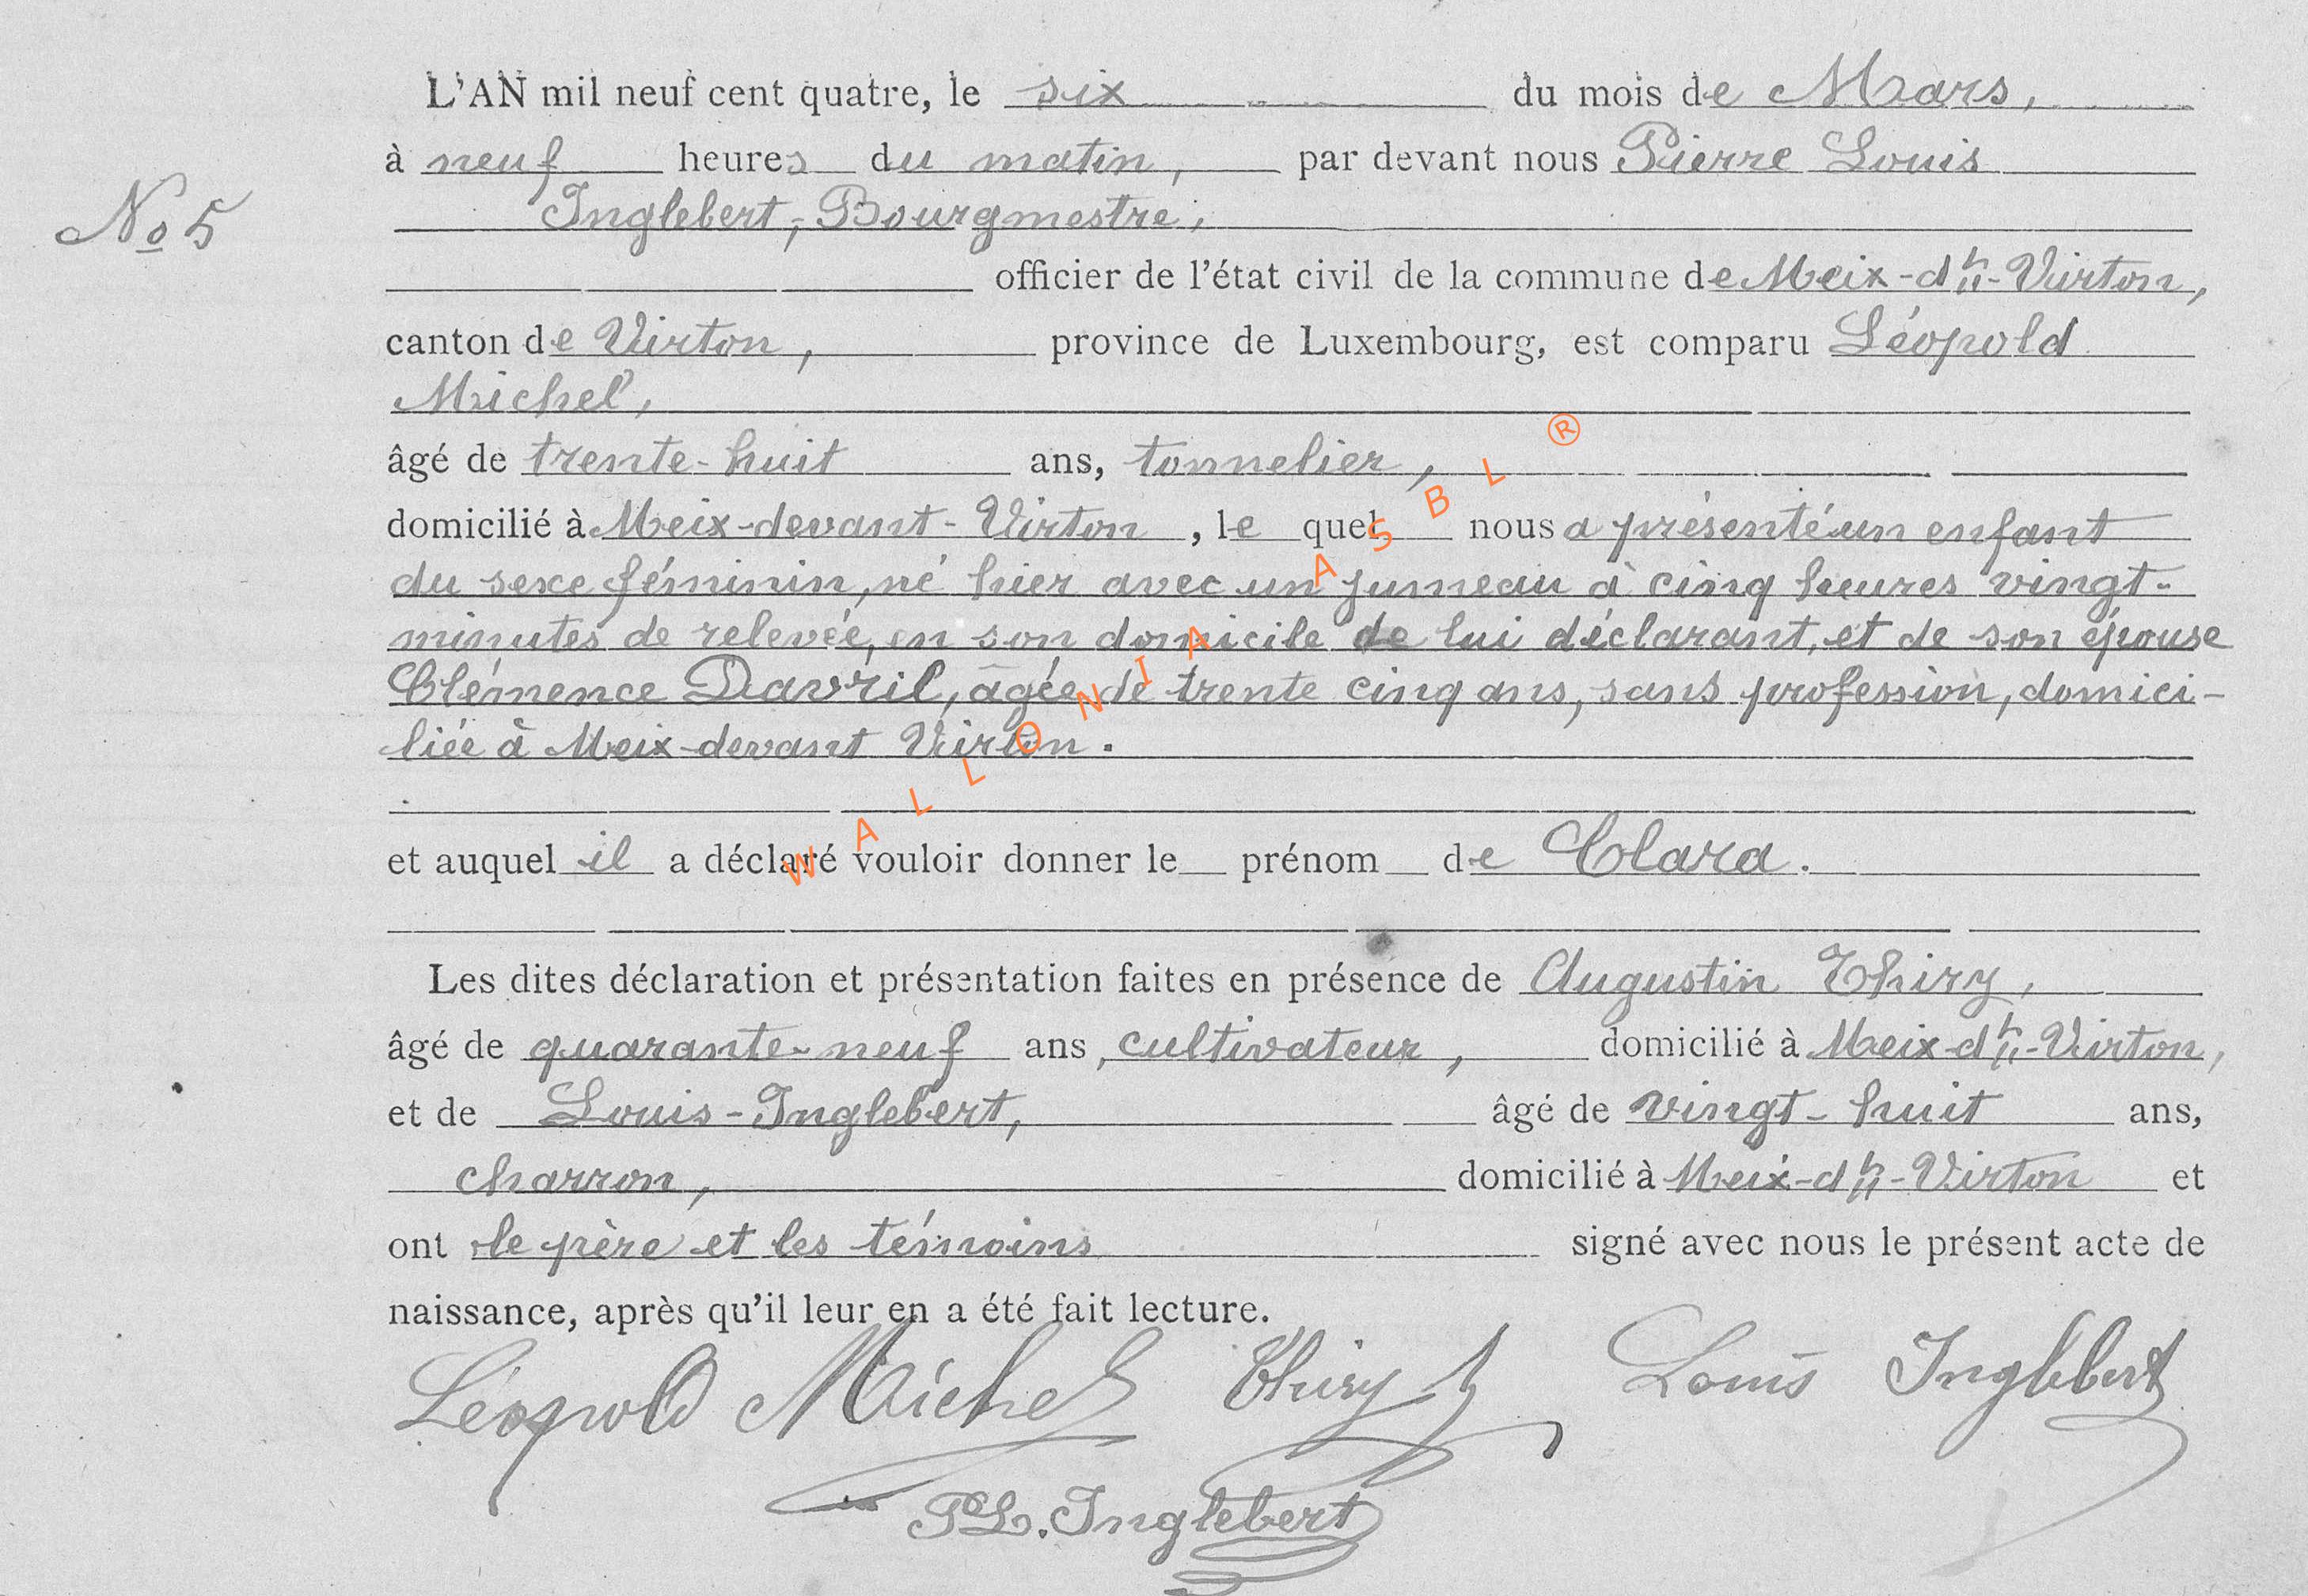 L'AN mil neuf cent quatre, le six du mois de Mars,
à neuf heures du matin, par devant nous Pierre Louis
N° 5
Inglebert, Bourgmestre,
officier de l'état civil de la commune de Meix-dt-Virton,
canton de Virton, province de Luxembourg, est comparu Léopold
Michel,
âgé de trente-huit ans, tonnelier,
domicilié à Meix-devant-Virton, le quel nous a présenté un enfant
du sexe féminin, né hier avec un jumeau à cinq heures vingt-
minutes de relevée, en son domicile de lui déclarant, et de son épouse
Clémence Davril, âgée de trente cinq ans, sans profession, domici-
liée à Meix-devant Virton.
et auquel il a déclaré vouloir donner le prénom de Clara.
Les dites déclaration et présentation faites en présence de Augustin Thiry,
âgé de quarante-neuf ans, cultivateur, domicilié à Meix-dt-Virton,
et de Louis-Inglebert, âgé de vingt-huit ans,
charron, domicilié à Meix-dt-Virton et
ont le père et les témoins signé avec nous le présent acte de
naissance, après qu'il leur en a été fait lecture.
Léopold Michel Thiry Louis Inglebert
PL. Inglebert
WALLONIA ASBL ®